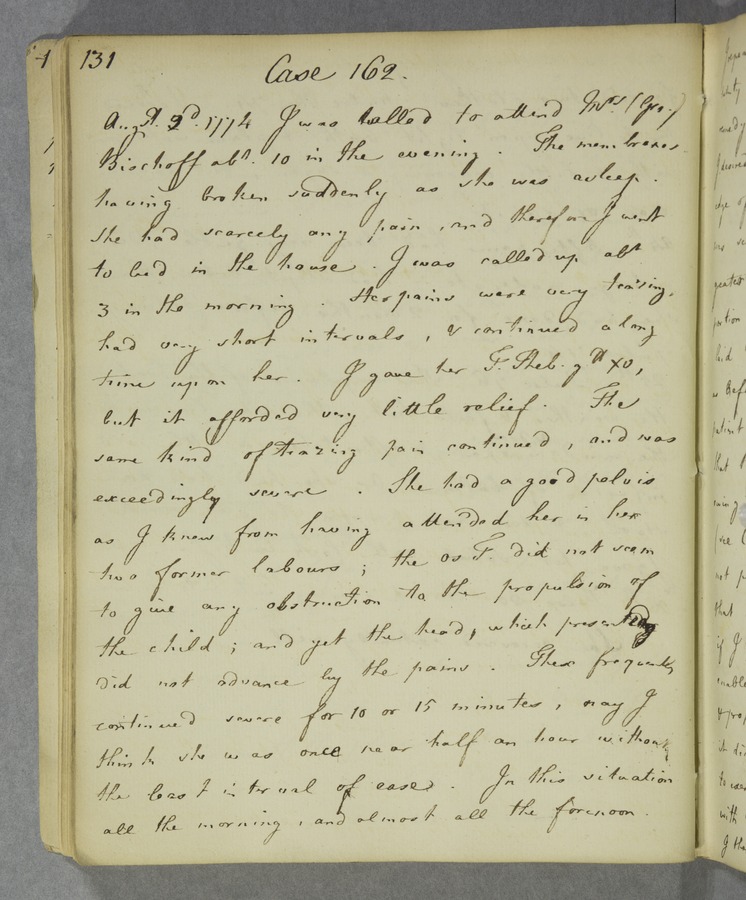 131
Case 162.
Augst. 2d. 1774 I was called to attend Mrs. (Geo.)
Bischoff abt. 10 in the evening. The membranes
having broken suddenly as she was asleep.
She had scarcely any pain, and therefore I went
to bed in the house. I was called up abt
3 in the morning. Her pains were very teazing,
had very short intervals, & continued a long
time upon her. I gave her T. Theb. gtt XV,
but it afforded very little relief. The
same kind of teazing pain continued, and was
exceedingly severe. She had a good pelvis
as I knew from having attended her in her
two former labours; the os T. did not seem
to give any obstruction to the propulsion of
the child; and yet the head, which presented
did not advance by the pains. These frequently
continued severe for 10 or 15 minutes, nay I
think she was once near half an hour without
the least interval of ease. In this situation
all the morning, and almost all the forenoon.